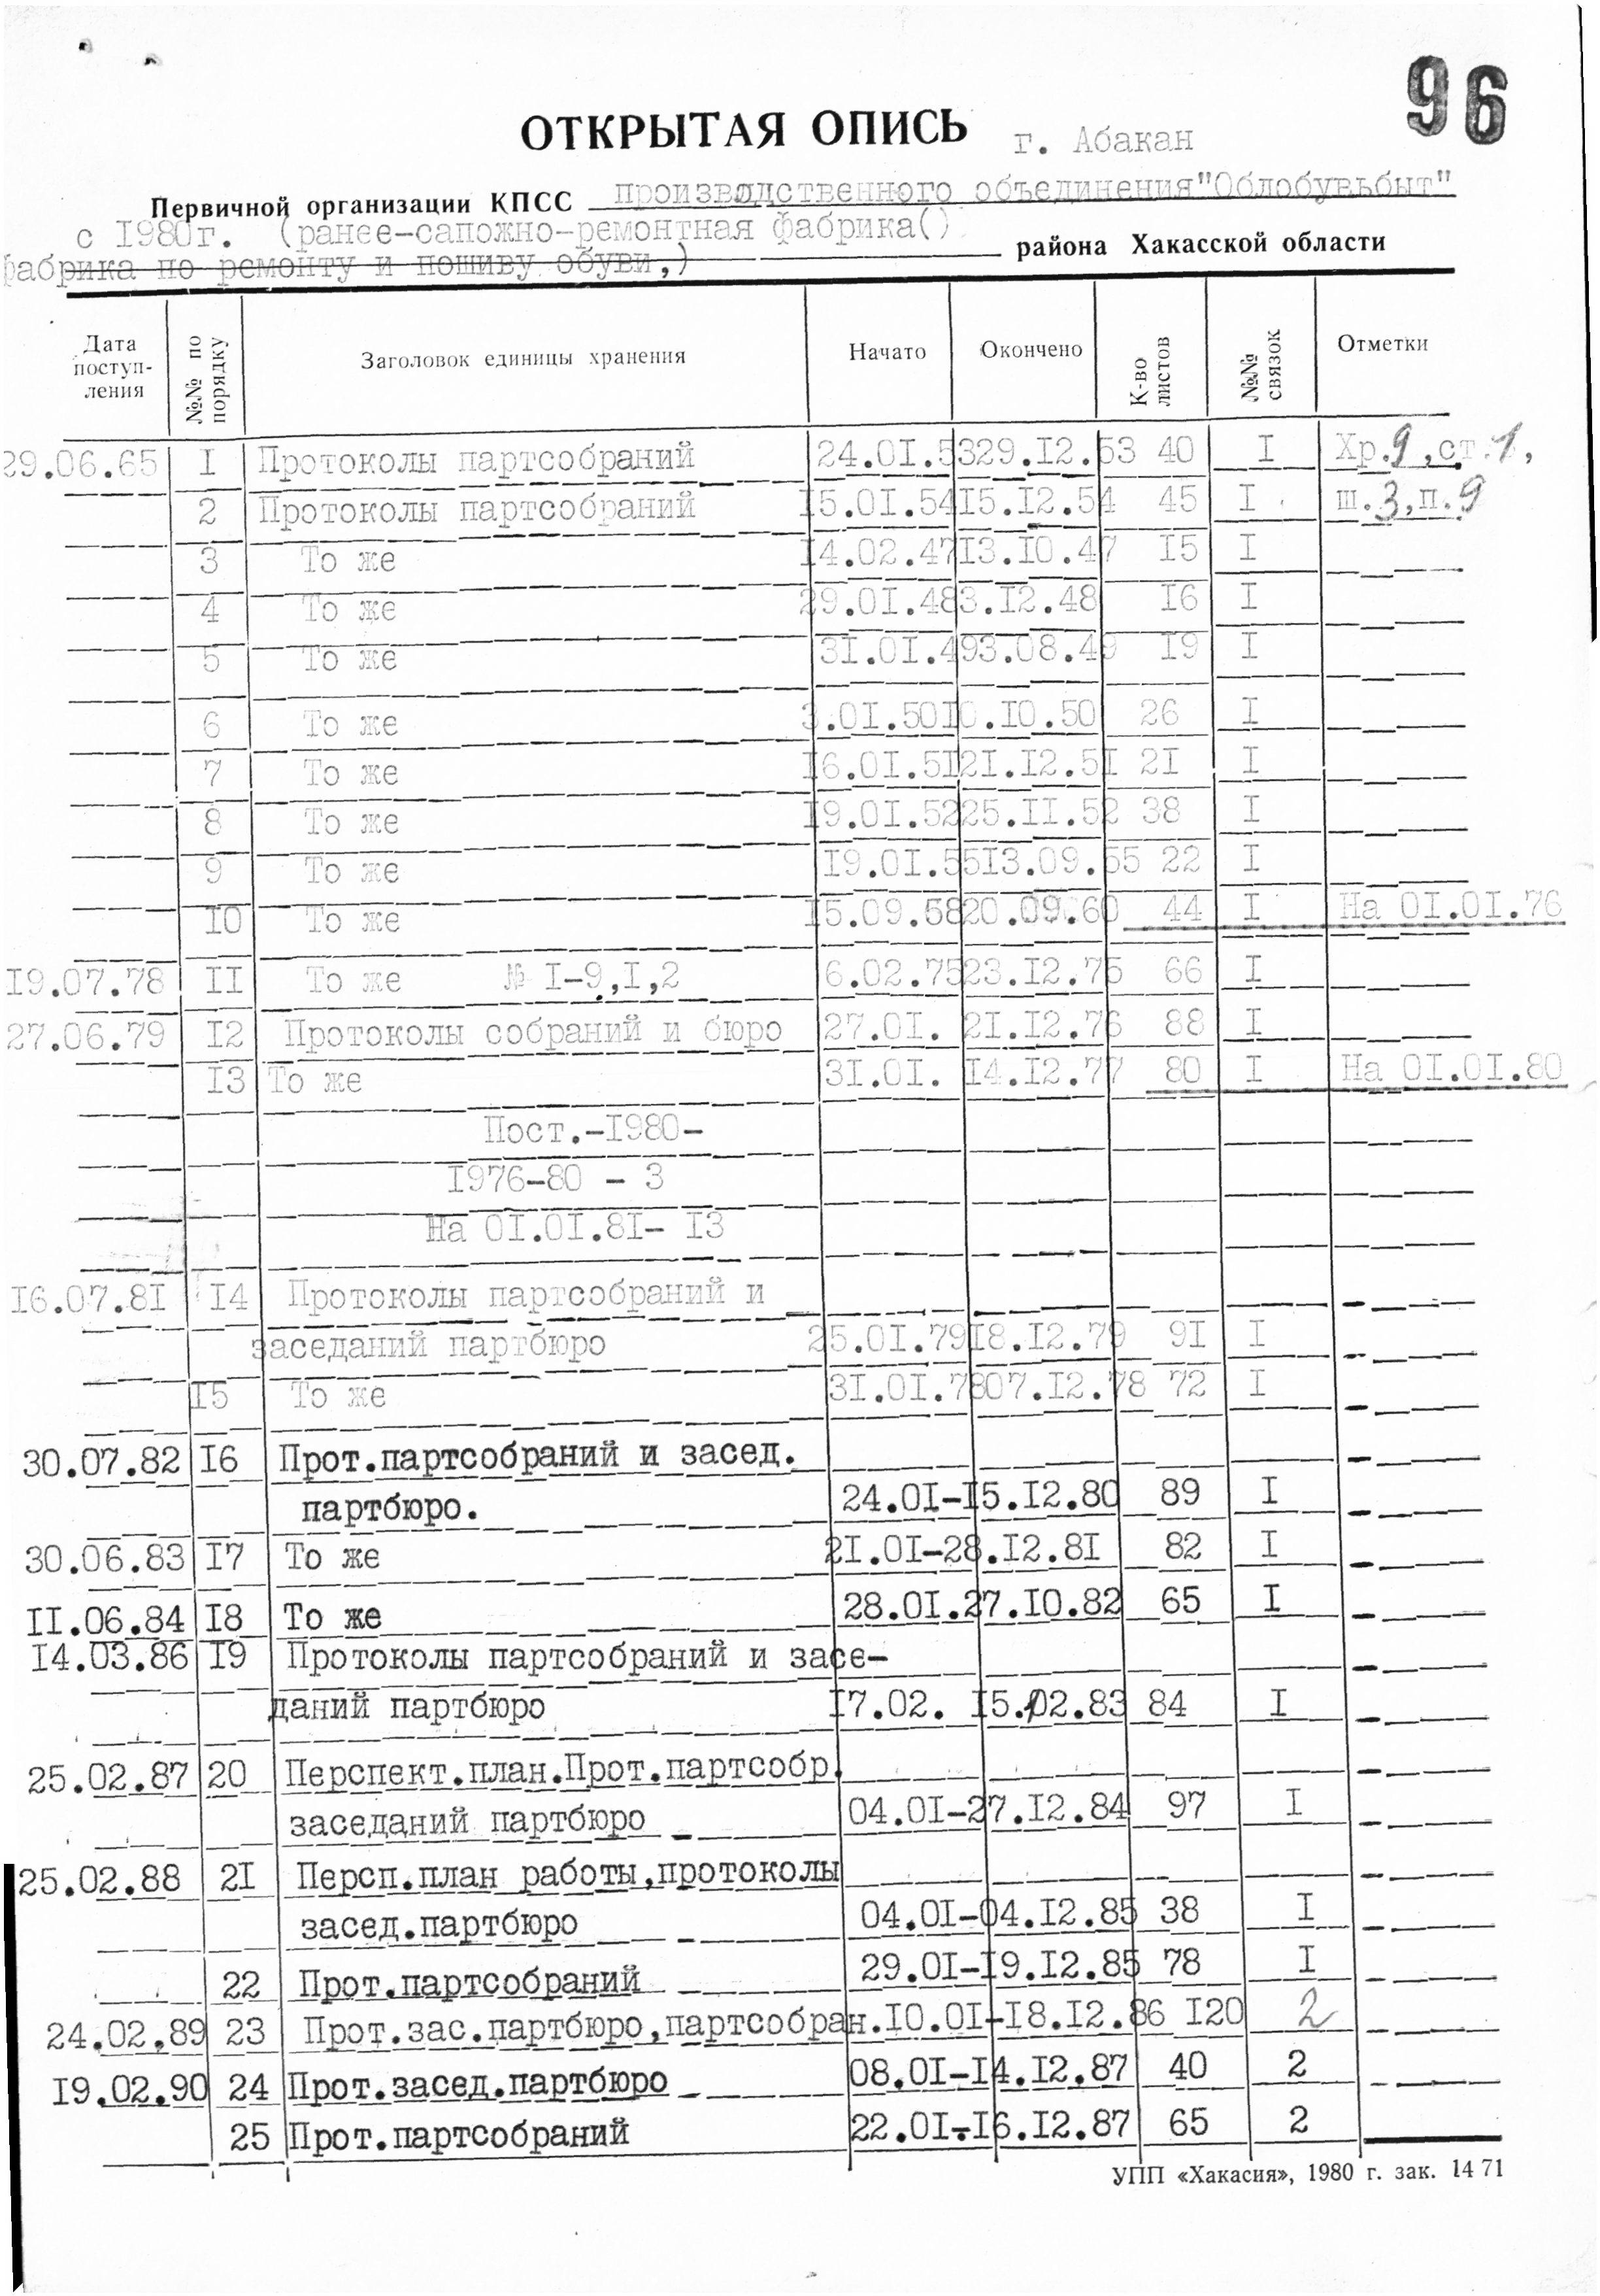 96
ОТКРЫТАЯ ОПИСЬ г. Абакан
Первичной организации КПСС производственного объединения"Облобувьбыт"
с 1980г. (ранее-сапожно-ремонтная фабрика()
фабрика по ремонту и пошиву обуви,) района Хакасской области
Дата поступ-ления №№ по порядку Заголовок единицы хранения Начато Окончено К-во листов №№ связок Отметки
29.06.65 I Протоколы партсобраний 24.01.53 29.12.53 40 I Хр.9,ст.1,
2 Протоколы партсобраний 15.01.54 15.12.54 45 I ш.3,п.9
3 То же 14.02.47 13.10.47 15 I
4 То же 29.01.48 3.12.48 16 I
5 То же 31.01.49 3.08.49 19 I
6 То же 3.01.50 10.10.50 26 I
7 То же 16.01.51 21.12.51 21 I
8 То же 19.01.52 25.11.52 38 I
9 То же 19.01.55 13.09.55 22 I
10 То же 15.09.58 20.09.60 44 I На 01.01.76
19.07.78 II То же № I-9,I,2 6.02.75 23.12.75 66 I
27.06.79 12 Протоколы собраний и бюро 27.01. 21.12.76 88 I
13 То же 31.01. 14.12.77 80 I На 01.01.80
Пост.-1980-
1976-80 - 3
На 01.01.81- 13
16.07.81 14 Протоколы партсобраний и
заседаний партбюро 25.01.79 18.12.79 91 I
15 То же 31.01.78 07.12.78 72 I
30.07.82 16 Прот.партсобраний и засед.
партбюро. 24.01-15.12.80 89 I
30.06.83 17 То же 21.01-28.12.81 82 I
11.06.84 18 То же 28.01.27.10.82 65 I
14.03.86 19 Протоколы партсобраний и засе-
даний партбюро 17.02. 15.12.83 84 I
25.02.87 20 Перспект.план.Прот.партсобр.
заседаний партбюро 04.01-27.12.84 97 I
25.02.88 21 Персп.план работы,протоколы
засед.партбюро 04.01-04.12.85 38 I
22 Прот.партсобраний 29.01-19.12.85 78 I
24.02.89 23 Прот.зас.партбюро,партсобран. 10.01-18.12.86 120 2
19.02.90 24 Прот.засед.партбюро 08.01-14.12.87 40 2
25 Прот.партсобраний 22.01-16.12.87 65 2
УПП «Хакасия», 1980 г. зак. 1471